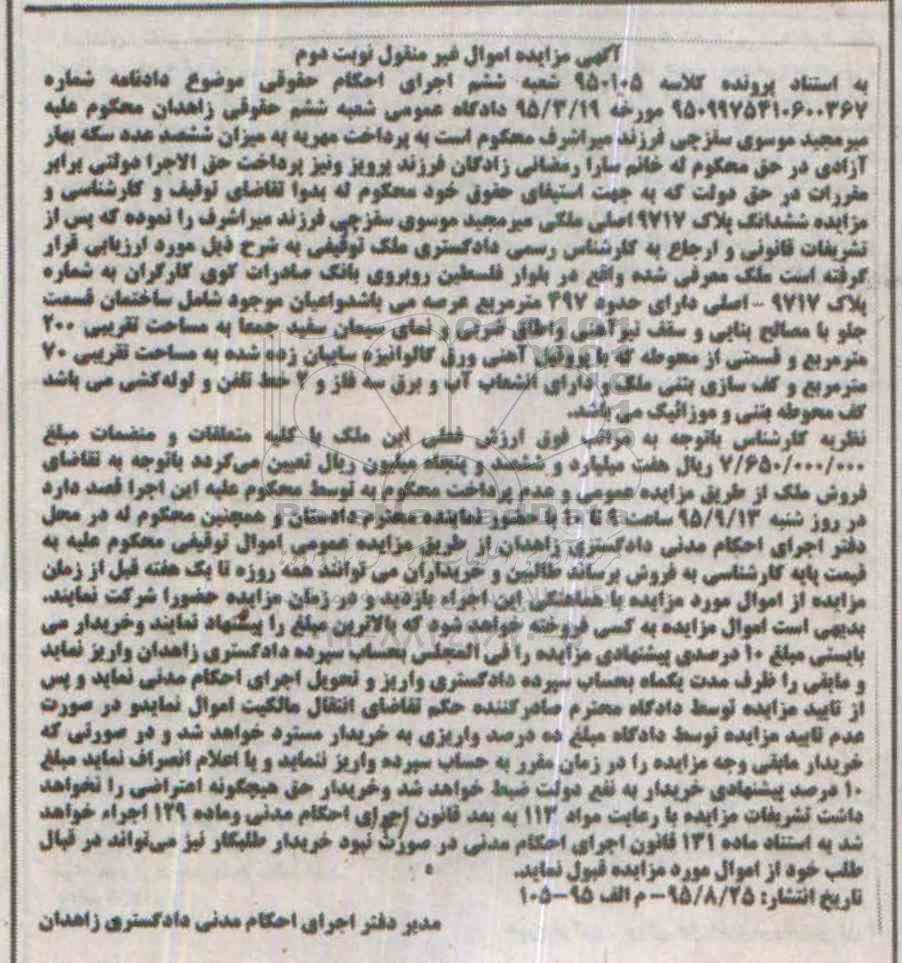 آگهی مزایده اموال غیر منقول نوبت دوم
به استناد پرونده کلاسه ۹۵۰۱۰۵ شعبه ششم اجرای احکام حقوقی موضوع دادنامه شماره
۹۵۰۹۹۷۵۴۱۰۶۰۰۳۶۷ مورخه ۹۵/۳/۱۹ دادگاه عمومی شعبه ششم حقوقی زاهدان محکوم علیه
میرمجید موسوی سقزچی فرزند میراشرف محکوم است به پرداخت مهریه به میزان ششصد عدد سکه بهار
آزادی در حق محکوم له خانم سارا رمضانی زادگان فرزند پرویز ونیز پرداخت حق الاجرا دولتی برابر
مقررات در حق دولت که به جهت استیفای حقوق خود محکوم له بدوا تقاضای توقیف و کارشناسی و
مزایده ششدانگ پلاک ۹۷۱۷ اصلی ملکی میرمجید موسوی سقزچی فرزند میراشرف را نموده که پس از
تشریفات قانونی و ارجاع به کارشناس رسمی دادگستری ملک توقیفی به شرح ذیل مورد ارزیابی قرار
گرفته است ملک معرفی شده واقع در بلوار فلسطین روبروی بانک صادرات کوی کارگران به شماره
پلاک ۹۷۱۷ - اصلی دارای حدود ۴۹۷ مترمربع عرصه می باشدواعیان موجود شامل ساختمان قسمت
جلو با مصالح بنایی و سقف تیرآهنی واطاق ضربی و نمای سیمان سفید جمعا به مساحت تقریبی ۲۰۰
مترمربع و قسمتی از محوطه که با پروفیل آهنی ورق گالوانیزه سایبان زده شده به مساحت تقریبی ۷۰
مترمربع و کف سازی بتنی ملک و دارای انشعاب آب و برق سه فاز و ۲ خط تلفن و لوله‌کشی می باشد
کف محوطه بتنی و موزائیک می باشد.
نظریه کارشناس باتوجه به مراتب فوق ارزش فعلی این ملک با کلیه متعلقات و منضمات مبلغ
۷/۶۵۰/۰۰۰/۰۰۰ ریال هفت میلیارد و ششصد و پنجاه میلیون ریال تعیین می‌گردد باتوجه به تقاضای
فروش ملک از طریق مزایده عمومی و عدم پرداخت محکوم به توسط محکوم علیه این اجرا قصد دارد
در روز شنبه ۹۵/۹/۱۳ ساعت ۹ تا ۱۰ با حضور نماینده محترم دادستان و همچنین محکوم له در محل
دفتر اجرای احکام مدنی دادگستری زاهدان از طریق مزایده عمومی اموال توقیفی محکوم علیه به
قیمت پایه کارشناسی به فروش برساند طالبین و خریداران می توانند همه روزه تا یک هفته قبل از زمان
مزایده از اموال مورد مزایده با هماهنگی این اجراء بازدید و در زمان مزایده حضورا شرکت نمایند.
بدیهی است اموال مزایده به کسی فروخته خواهد شود که بالاترین مبلغ را پیشنهاد نمایند وخریدار می
بایستی مبلغ ۱۰ درصدی پیشنهادی مزایده را فی المجلس بحساب سپرده دادگستری زاهدان واریز نماید
و مابقی را ظرف مدت یکماه بحساب سپرده دادگستری واریز و تحویل اجرای احکام مدنی نماید و پس
از تایید مزایده توسط دادگاه محترم صادرکننده حکم تقاضای انتقال مالکیت اموال نمایدو در صورت
عدم تایید مزایده توسط دادگاه مبلغ ده درصد واریزی به خریدار مسترد خواهد شد و در صورتی که
خریدار مابقی وجه مزایده را در زمان مقرر به حساب سپرده واریز ننماید و یا اعلام انصراف نماید مبلغ
۱۰ درصد پیشنهادی خریدار به نفع دولت ضبط خواهد شد وخریدار حق هیچگونه اعتراضی را نخواهد
داشت تشریفات مزایده با رعایت مواد ۱۱۳ به بعد قانون اجرای احکام مدنی وماده ۱۲۹ اجراء خواهد
شد به استناد ماده ۱۳۱ قانون اجرای احکام مدنی در صورت نبود خریدار طلبکار نیز می‌تواند در قبال
طلب خود از اموال مورد مزایده قبول نماید.
تاریخ انتشار: ۹۵/۸/۲۵- م الف ۹۵-۱۰۵
مدیر دفتر اجرای احکام مدنی دادگستری زاهدان